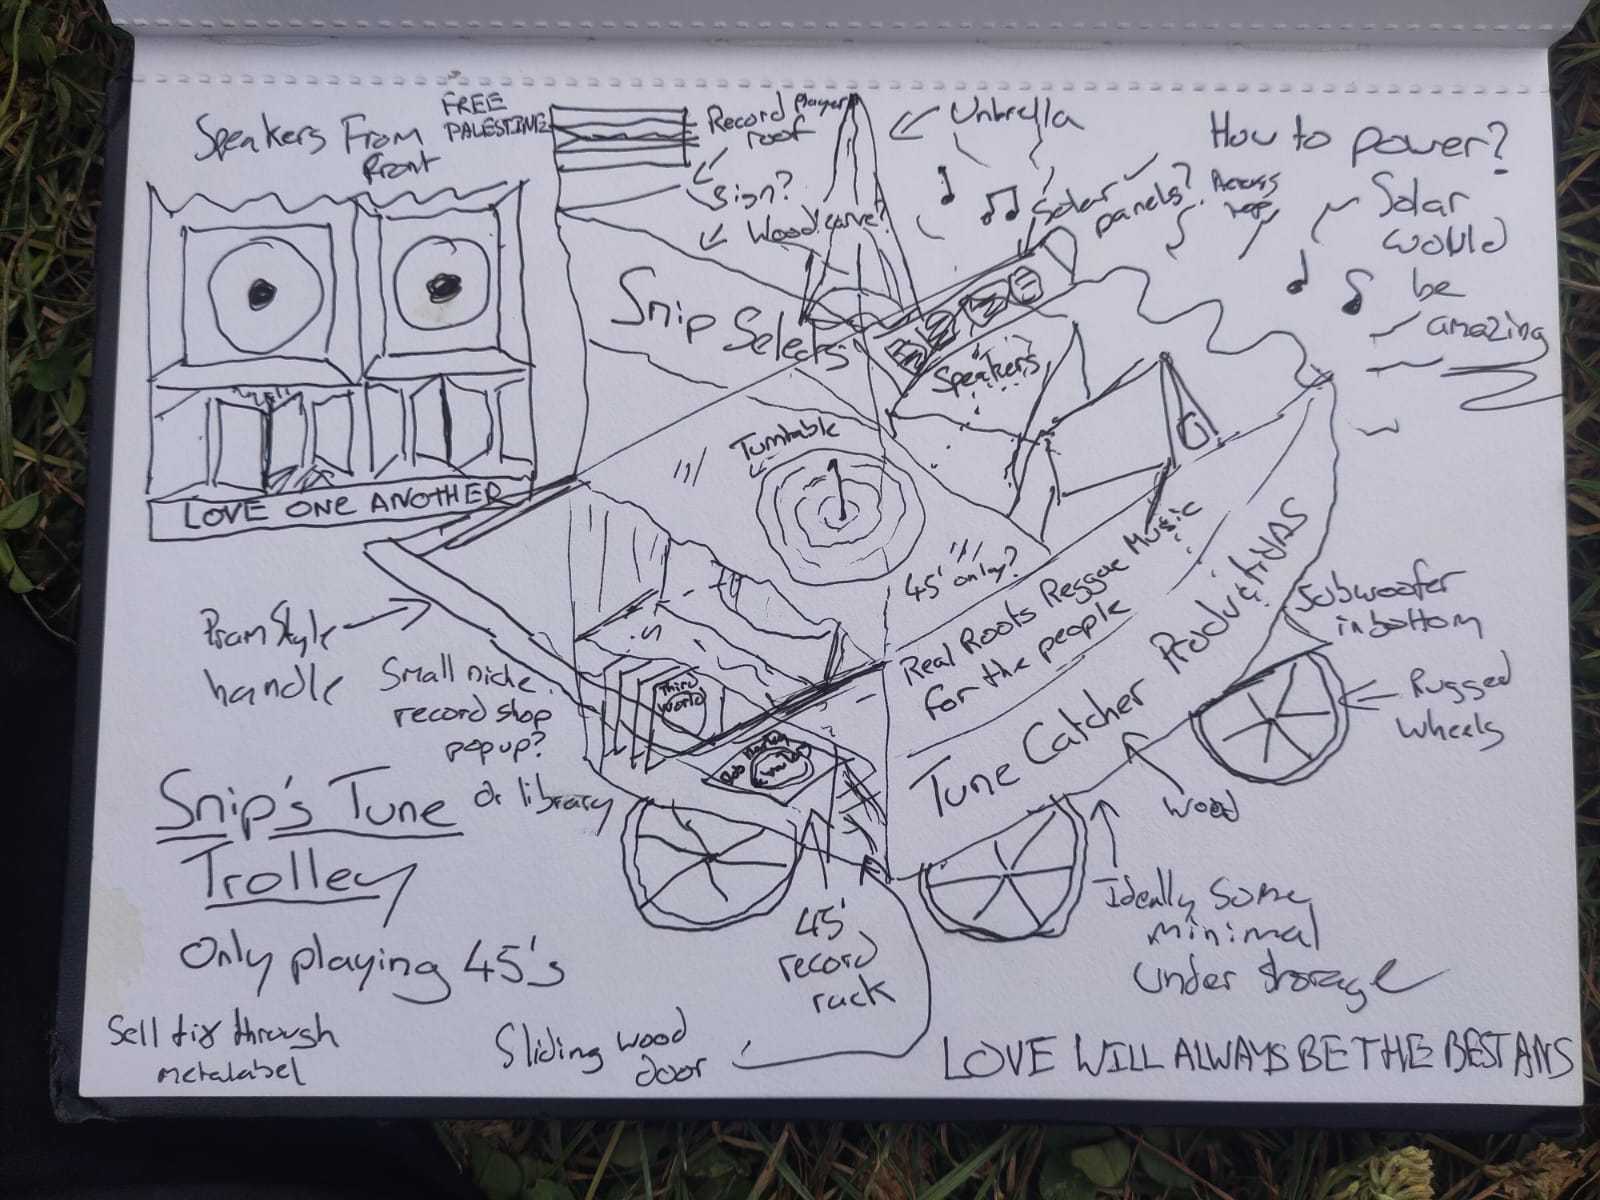 Speakers From
front
FREE
PALESTINE
Record player
roof
Sign?
Wood carve?
Unbrella
Solar
panels?
Across
top
How to power?
Solar
would
be
amazing
Snip Selects
Speakers
Turntable
45' only?
LOVE ONE ANOTHER
Real Roots Reggae Music
for the people
Tune Catcher
Subwoofer
in bottom
Rugged
wheels
Wood
Pram Style
handle
Small niche
record shop
pop up?
or library
Third
World
Bob Marley
Snip's Tune
Trolley
Only playing 45's
45'
record
rack
Ideally Some
minimal
under storage
Sell tix through
metalabel
Sliding wood
door
LOVE WILL ALWAYS BE THE BEST ANS